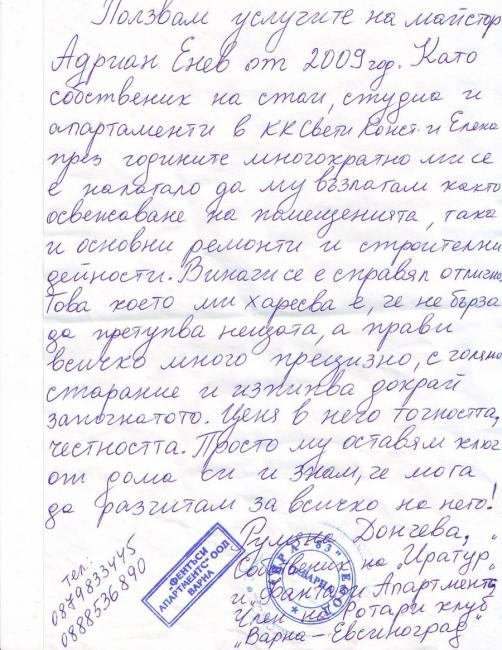 Ползвам услугите на майстор
Адриан Енев от 2009 год. Като
собственик на стаи, студиа и
апартаменти в КК Свети Конст. и Елена
през годините многократно ми се
е налагало да му възлагам както
освежаване на помещенията, така
и основни ремонти и строителни
дейности. Винаги се е справял отлично.
Това което ми харесва е, че не бърза
да претупва нещата, а прави
всичко много прецизно, с голямо
старание и изпипва докрай
започнатото. Ценя в него точността,
честността. Просто му оставям ключ
от дома си и знам, че мога
да разчитам за всичко на него!
Румяна Дончева,
Собственик на "Иратур"
и Фантази Апартментс
Член на Ротари клуб
"Варна - Евсиноград"
тел:
0879833445
0888536890
"ФЕНТЪСИ
АПАРТМЕНТС" ООД
ВАРНА
ВАРНА